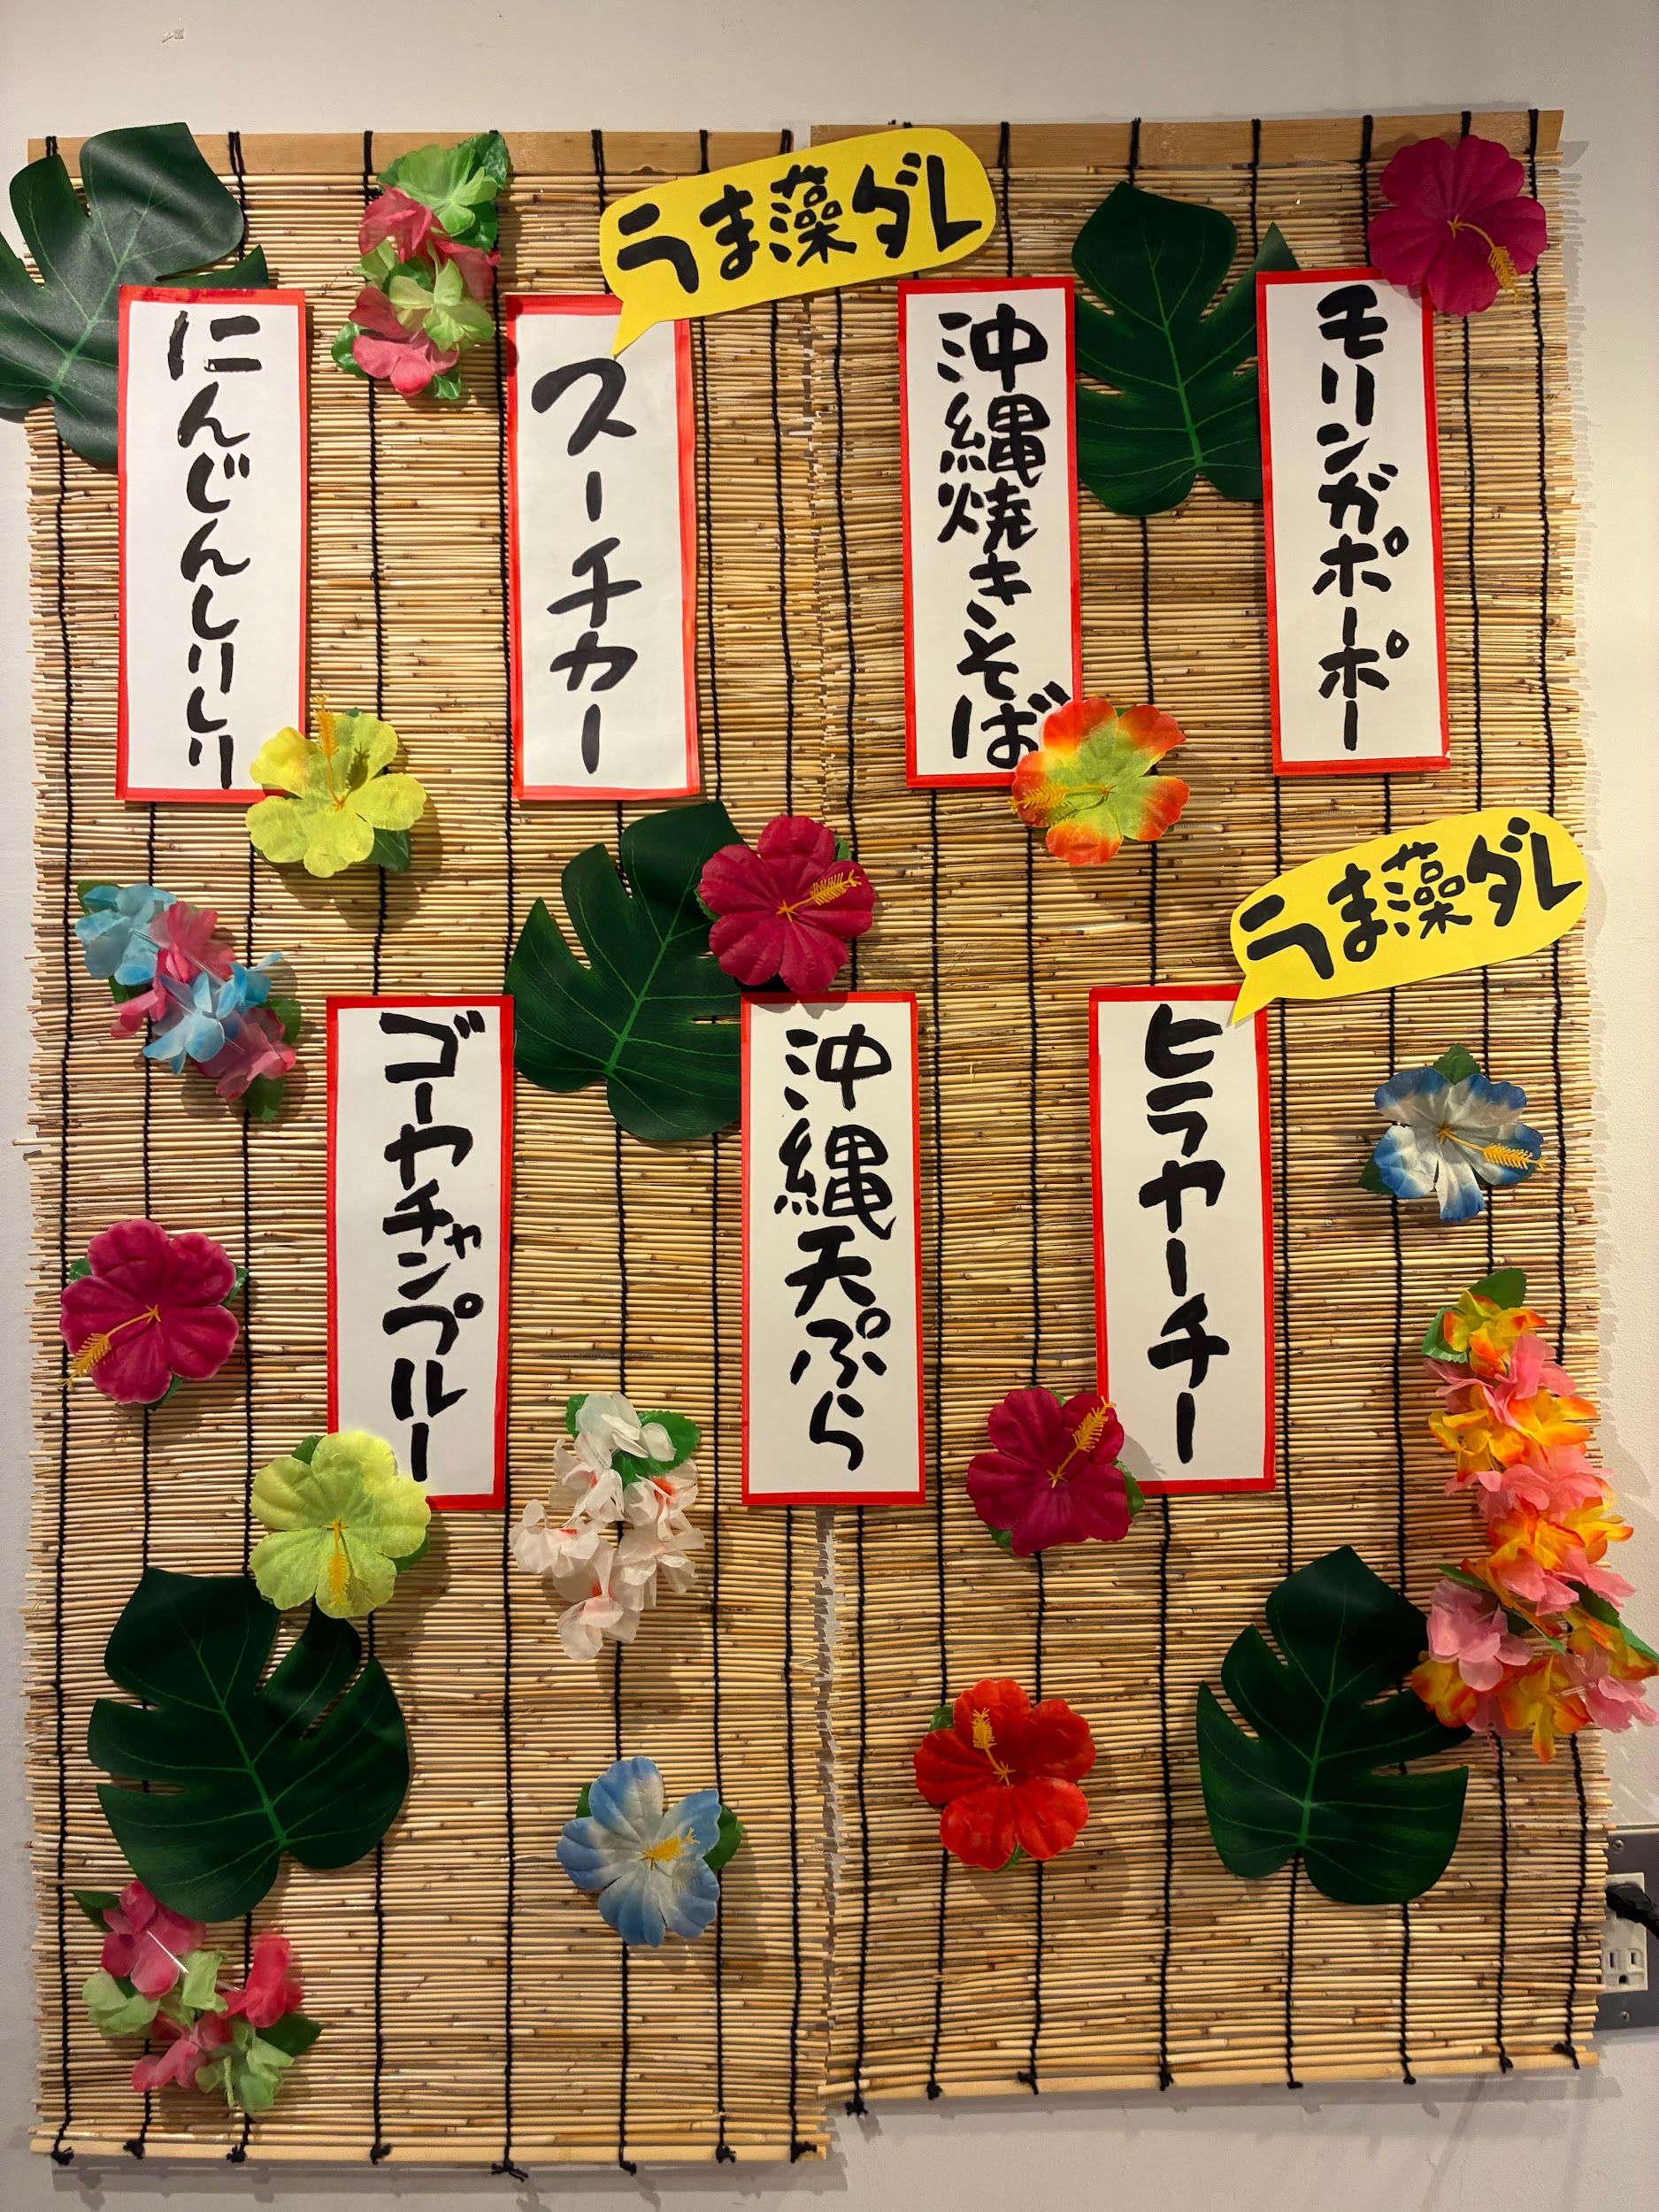 モリンガポーポー
沖縄焼きそば
うま藻ダレ
スーチカー
にんじんしりしり
うま藻ダレ
ヒラヤーチー
沖縄天ぷら
ゴーヤチャンプルー